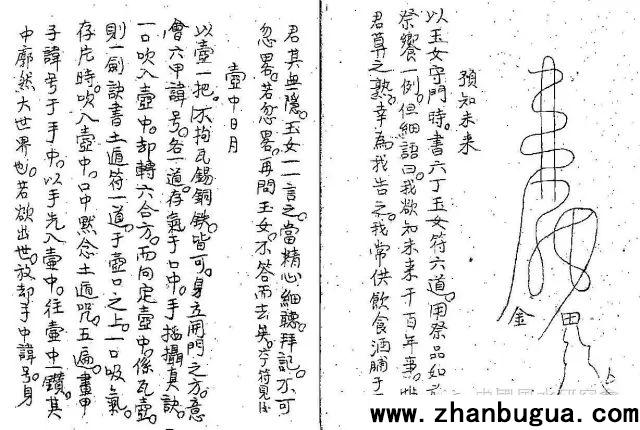 金 田
預知未來
以玉女守門時。書六丁玉女符六道。用祭品如
祭饗一例。但細語曰我欲知未來千百年事。
君算之熟。幸為我告之。我常供飲食酒脯于
君其無隱。玉女一一言之。當精心細聽拜記。不可
忽畧。若忽畧。再問玉女。不答而去矣。六符見後
壺中日月
以壺一把。不拘瓦錫銅鉄皆可。身立開門之方。意
會六甲諱号。各一道。存氣于口中。手搯攝真訣。
一口吹入壺中。却轉六合方。而向定壺中。係瓦壺。
則一劍訣書土遁符一道。于壺口之上。一口吸氣。
存片時。吹入壺中。口中默念土遁咒。五遍。畫甲
子諱号于手中。以手先入壺中。往壺中一鑽。其
中廓然大世界也。若欲出世。放却手中諱号。身
www.zhanbugua.com